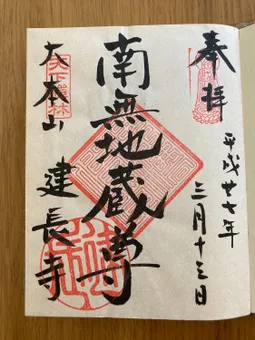 奉拝
平成廿七年
三月十三日
南無地蔵尊
天下禅林
大本山
建長寺